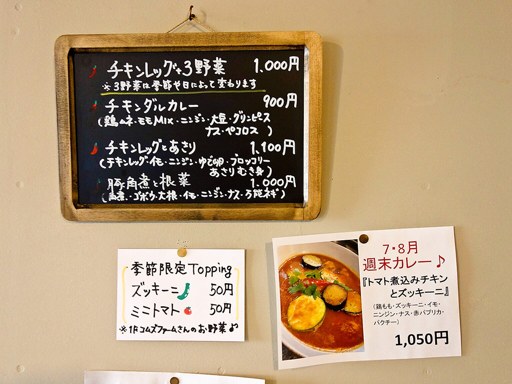 チキンレッグ+3野菜 1,000円
※3野菜は季節や日によって変わります
チキンダルカレー 900円
(鶏ムネ・モモMix・ニンジン・大豆・グリンピース
ナス・ペコロス)
チキンレッグとあさり 1,100円
(チキンレッグ・イモ・ニンジン・ゆで卵・ブロッコリー
あさりむき身)
豚角煮と根菜 1,000円
(角煮・ゴボウ・大根・イモ・ニンジン・ナス・万能ネギ)
季節限定Topping
ズッキーニ 50円
ミニトマト 50円
※1Fコムズファームさんのお野菜♪
7・8月
週末カレー♪
『トマト煮込みチキン
とズッキーニ』
(鶏もも・ズッキーニ・イモ・
ニンジン・ナス・赤パプリカ・
パクチー)
1,050円